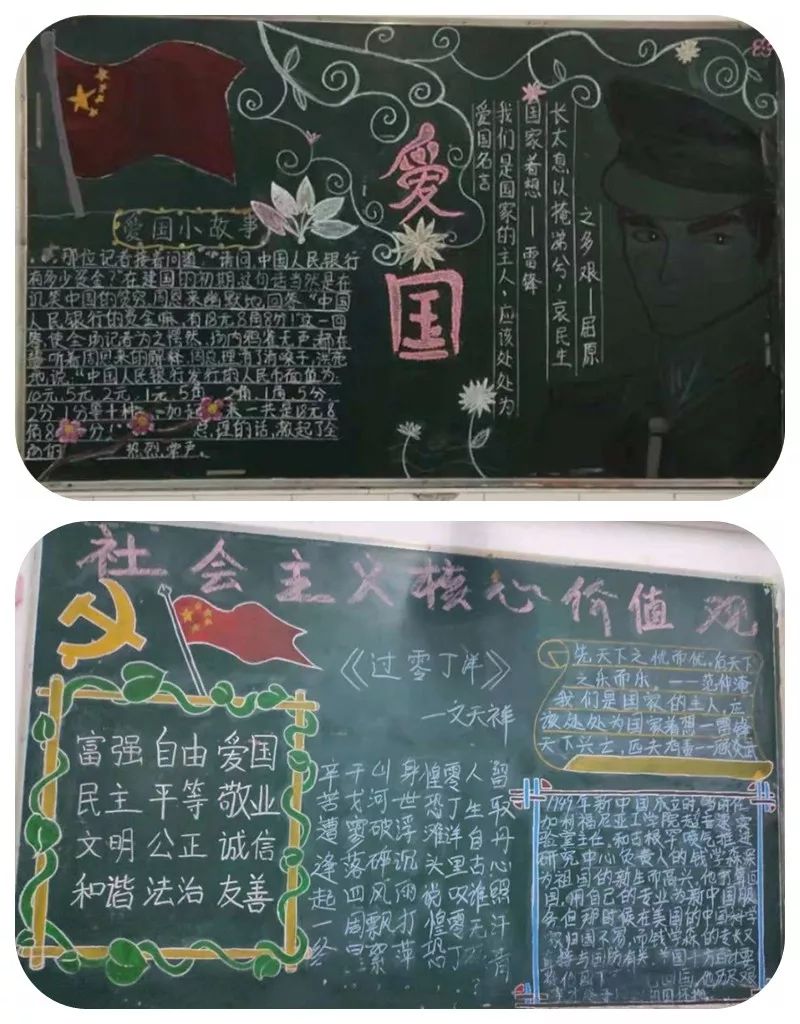 爱国小故事
那位记者接着问道:“请问,中国人民银行
有多少资金?”在建国的初期,这句话当然是在
讥笑中国的贫穷,周恩来幽默地回答:“中国
人民银行的资金嘛,有18元8角8分!”这一回
答,使全场记者为之愕然,场内鸦雀无声,都在
静听着周恩来的解释,周总理有了清嗓子,洪亮
地说:“中国人民银行发行的人民币面值为
10元,5元,2元,1元,5角,2角,1角,5分,
2分,1分等十种,加起来一共是18元8
角8分 总理的话,激起了全
热烈掌声。
爱国
爱国名言
我们是国家的主人,应该处处为
国家着想——雷锋
长太息以掩涕兮,哀民生
之多艰—屈原
社会主义核心价值观
富强 自由 爱国
民主 平等 敬业
文明 公正 诚信
和谐 法治 友善
《过零丁洋》
—文天祥
辛苦遭逢起一
干戈寥落四周星
山河破碎风飘絮
身世浮沉雨打萍
惶恐滩头说惶恐
零丁洋里叹零丁
人生自古谁无 ?
留取丹心照汗青
先天下之忧而忧,后天下
之乐而乐。——范仲淹
我们是国家的主人,应
该处处为国家着想—雷锋
天下兴亡,匹夫有责—顾炎武
1949年新中国成立时,当时任
加利福尼亚工学院超音速实
验室主任,和古根罕喷气推进
研究中心负责人的钱学森深
为祖国的新生而高兴。他打算回
国,用自己的专业为新中国服
务。但那时候在美国的中国科学
家归国不易,而钱学森的专长又
直接与国防有关,美国千方百计要